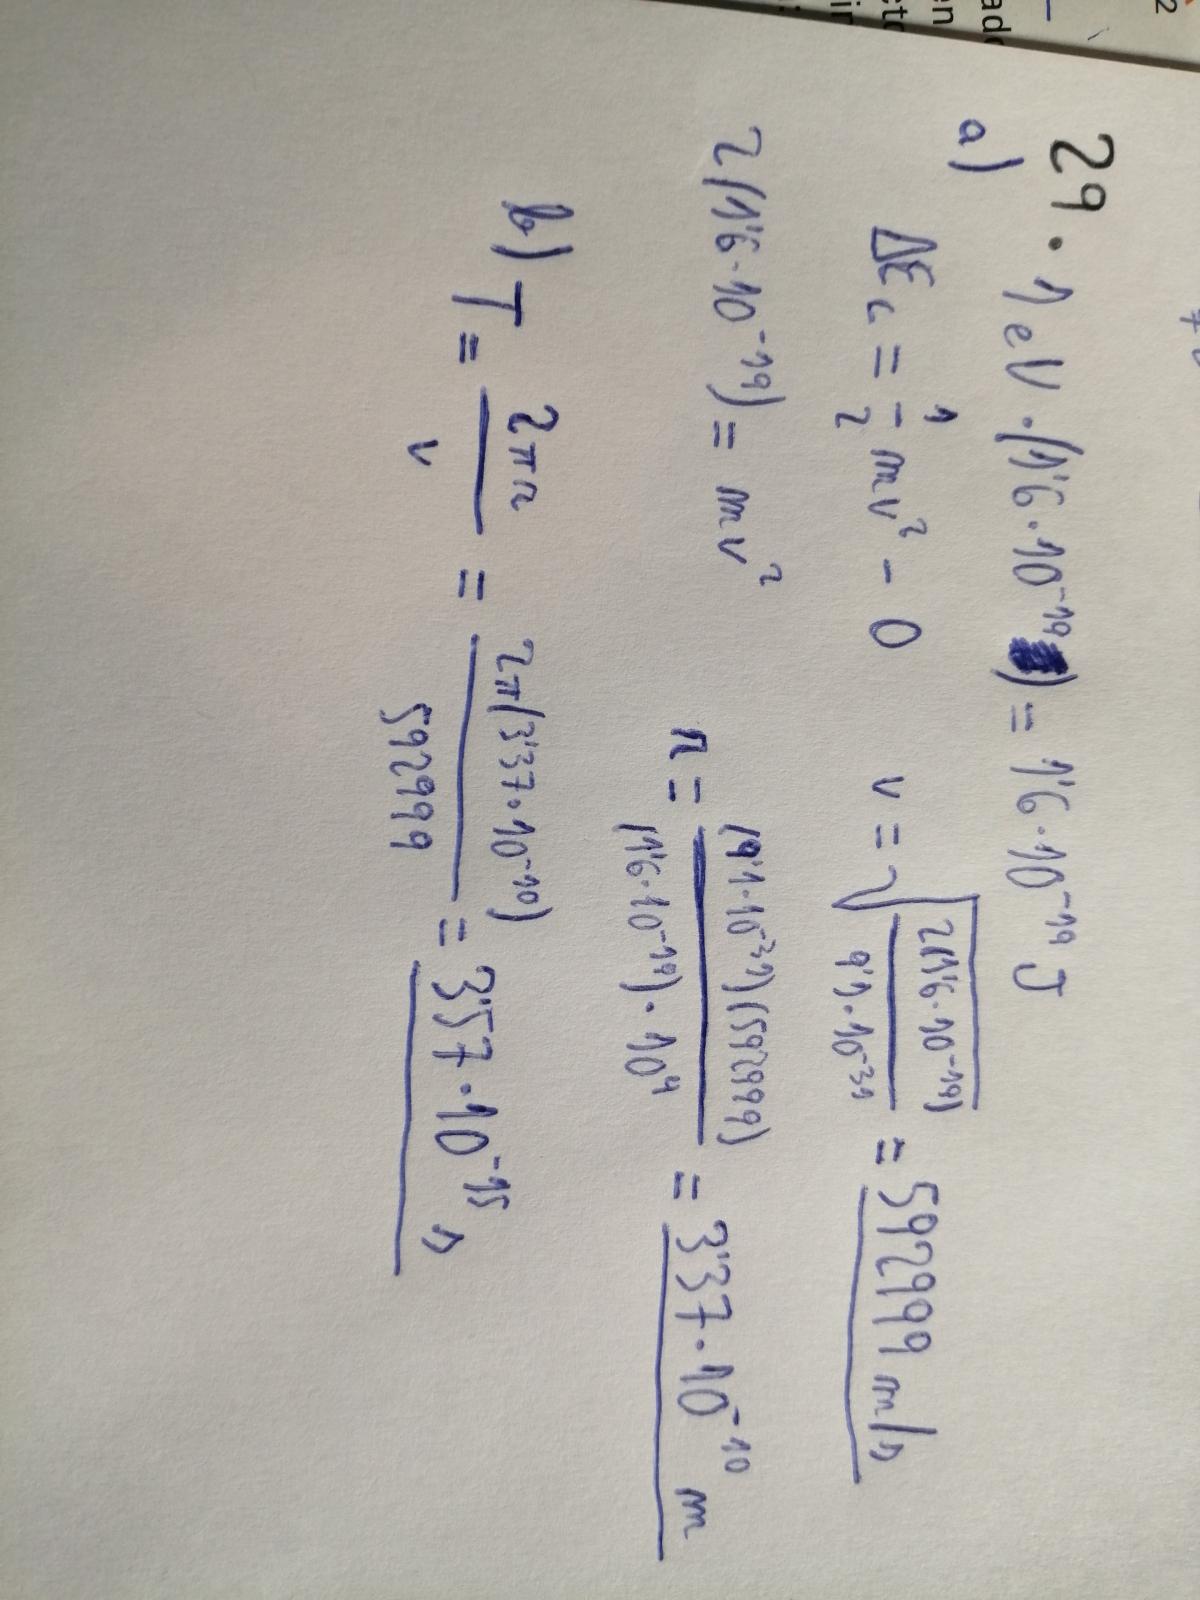 29. 1 eV · (1'6 · 10⁻¹⁹) = 1'6 · 10⁻¹⁹ J
a)
ΔEc = 1/2 mv² - 0
v = √(2(1'6 · 10⁻¹⁹) / 9'1 · 10⁻³¹) = 592999 m/s
2(1'6 · 10⁻¹⁹) = mv²
r = (9'1 · 10⁻³¹)(592999) / (1'6 · 10⁻¹⁹) · 10⁴ = 3'37 · 10⁻¹⁰ m
b) T = 2πr / v = 2π(3'37 · 10⁻¹⁰) / 592999 = 3'57 · 10⁻¹⁵ s